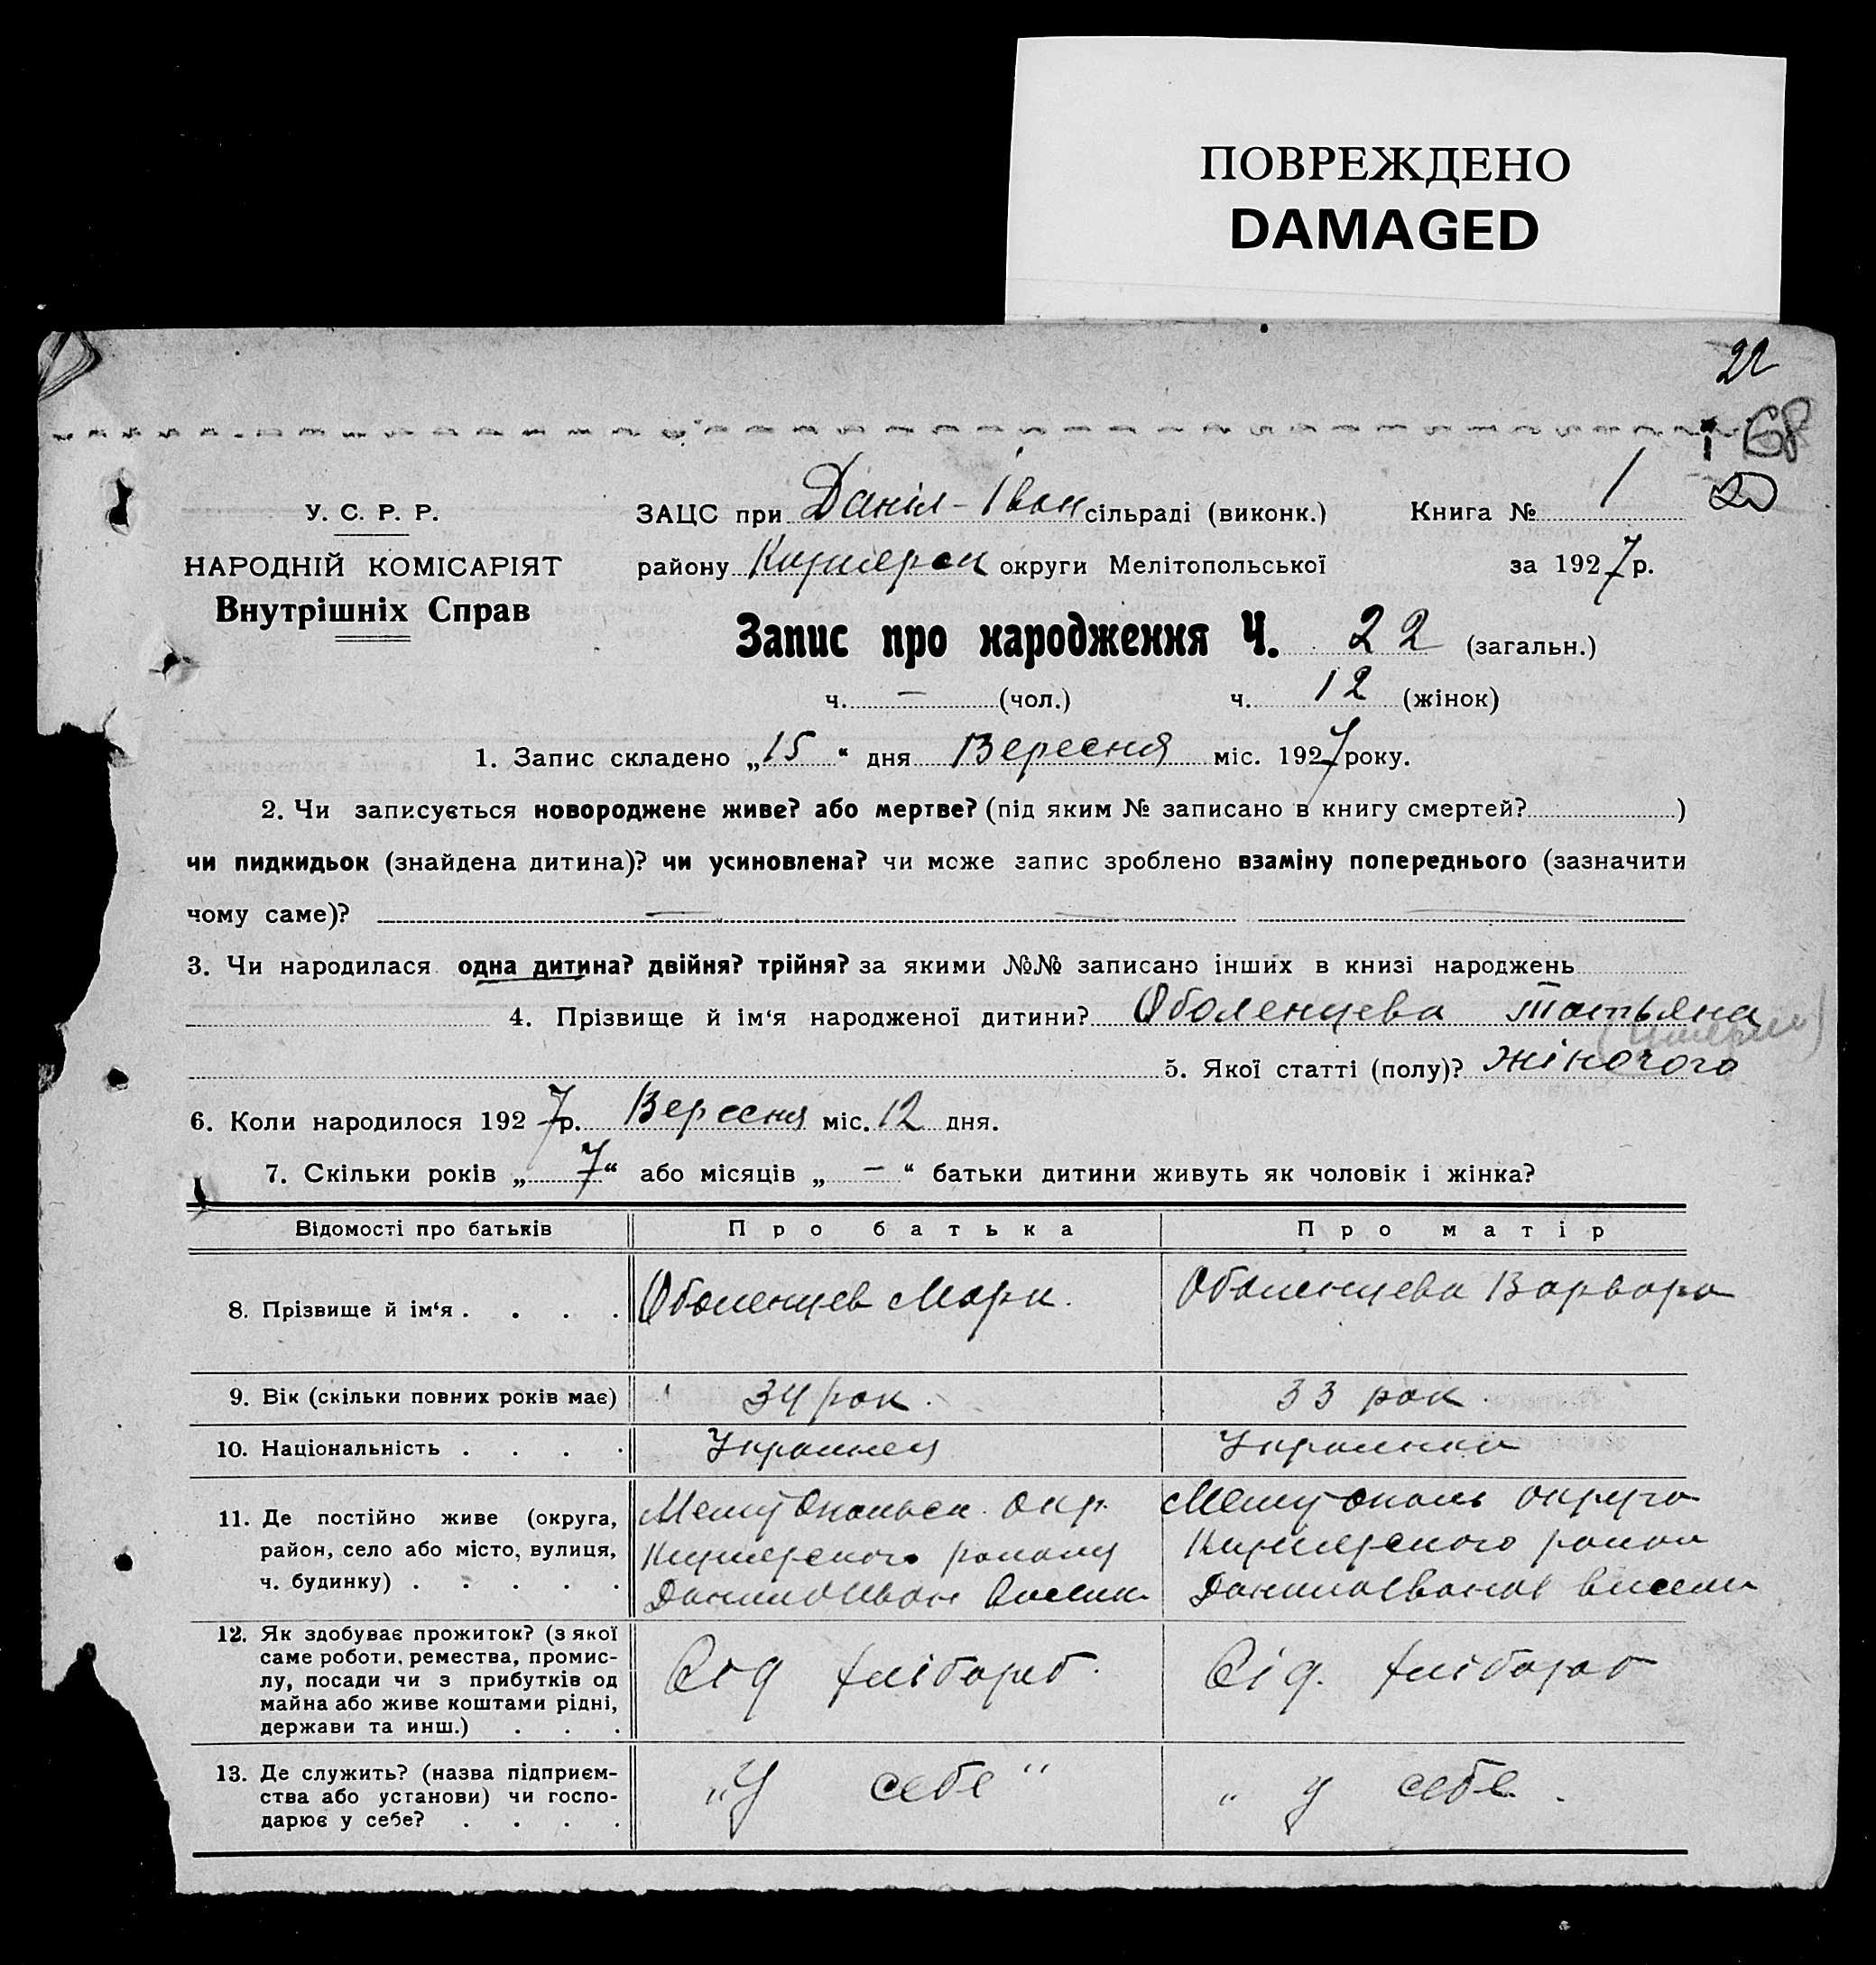 ПОВРЕЖДЕНО
DAMAGED
22
68
У. С. Р. Р.
НАРОДНІЙ КОМІСАРІЯТ
Внутрішніх Справ
ЗАЦС при Даніл-Іван сільраді (виконк.) Книга № 1
району округи Мелітопольської за 1927 р.
Запис про народження Ч. 22 (загальн.)
ч. — (чол.) ч. 12 (жінок)
1. Запис складено „15“ дня Вересня міс. 1927 року.
2. Чи записується новороджене живе? або мертве? (під яким № записано в книгу смертей? )
чи пидкидьок (знайдена дитина)? чи усиновлена? чи може запис зроблено взаміну попереднього (зазначити
чому саме)? —
3. Чи народилася одна дитина? двійня? трійня? за якими №№ записано інших в книзі народжень
4. Прізвище й ім‘я народженої дитини? Оболенцева Татьяна
5. Якої статті (полу)? жіночого
6. Коли народилося 1927 р. Вересня міс. 12 дня.
7. Скільки років „7“ або місяців „—“ батьки дитини живуть як чоловік і жінка?
Відомості про батьків Про батька Про матір
8. Прізвище й ім‘я . . . . Оболенцев Марк. Оболенцева Варвара
9. Вік (скільки повних років має) 34 рок. 33 рок.
10. Національність . . . . Украинец Украинка
11. Де постійно живе (округа,
район, село або місто, вулиця,
ч. будинку) . . . . .
окр.
району
округа
района
12. Як здобуває прожиток? (з якої
саме роботи, ремества, промис-
лу, посади чи з прибутків од
майна або живе коштами рідні,
держави та инш.) . . .
Від хлібороб. Від. хлібороб
13. Де служить? (назва підприєм-
ства або установи) чи госпо-
дарює у себе? . . . .
„У себе“ „ у себе.